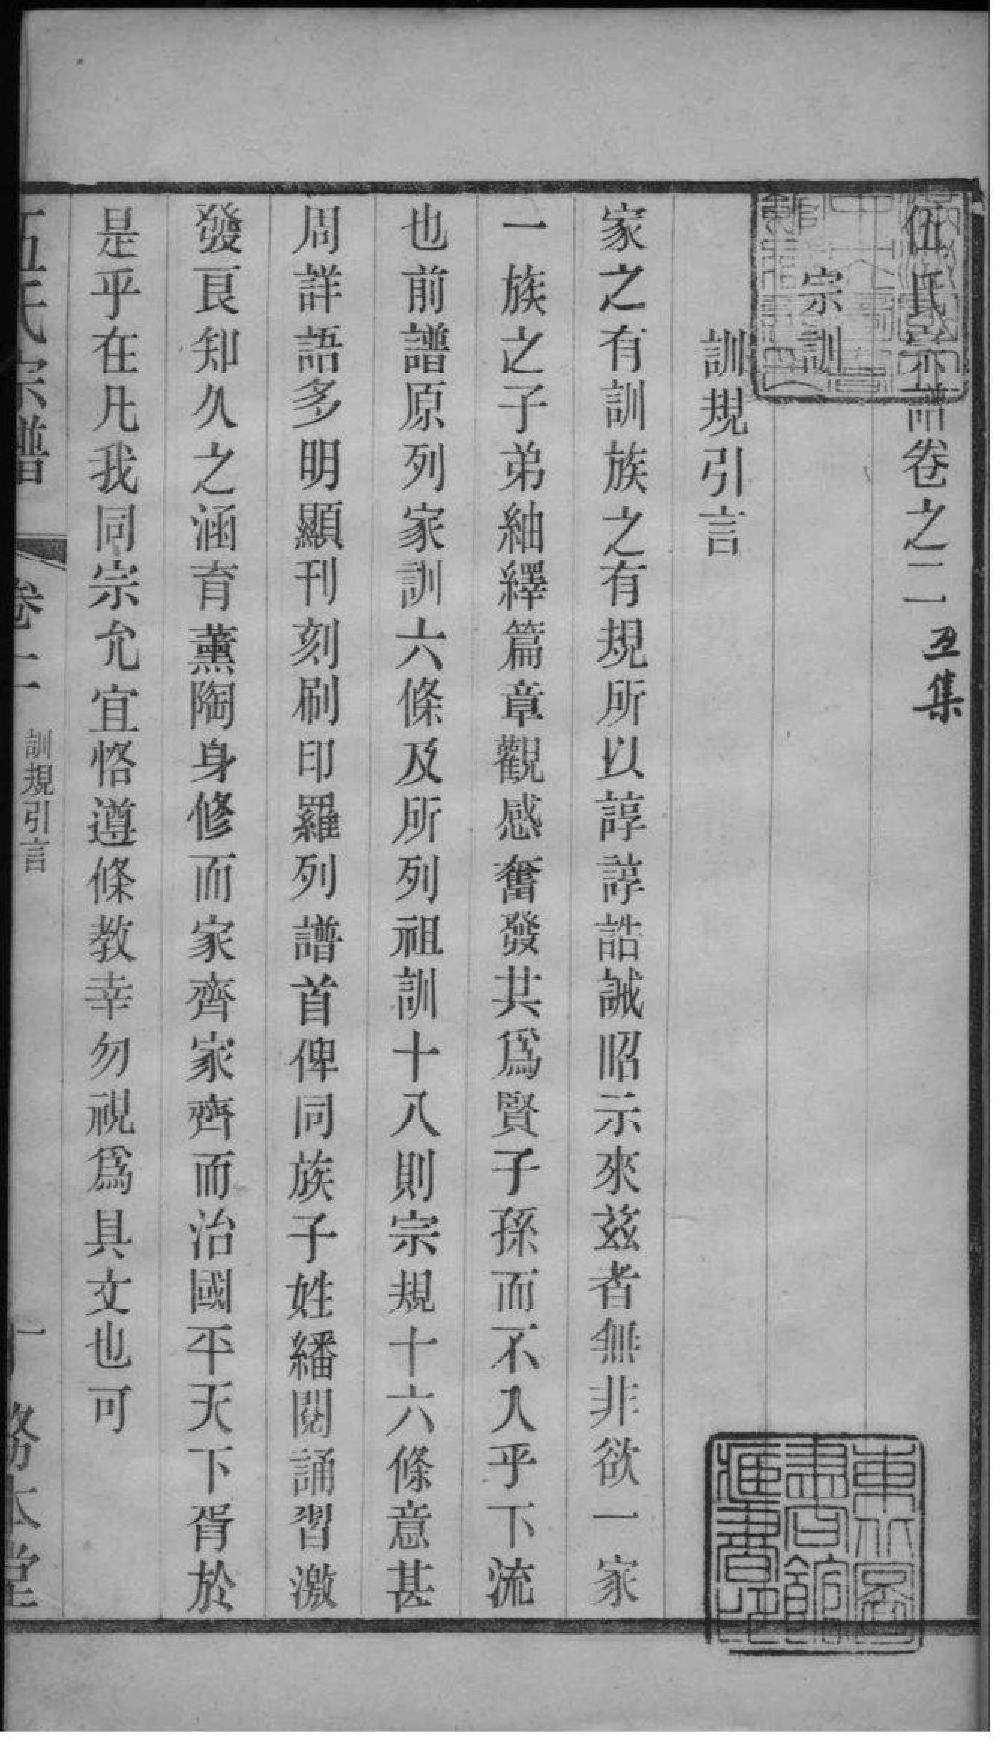 伍氏宗譜卷之二 五集
宗訓
訓規引言
家之有訓族之有規所以諄諄誥誡昭示來茲者無非欲一家
一族之子弟紬繹篇章觀感奮發共爲賢子孫而不入乎下流
也前譜原列家訓六條及所列祖訓十八則宗規十六條意甚
周詳語多明顯刊刻刷印羅列譜首俾同族子姓繙閱誦習激
發良知久之涵育薰陶身修而家齊家齊而治國平天下胥於
是乎在凡我同宗允宜恪遵條教幸勿視爲具文也可
伍氏宗譜 卷二 訓規引言 一 務本堂